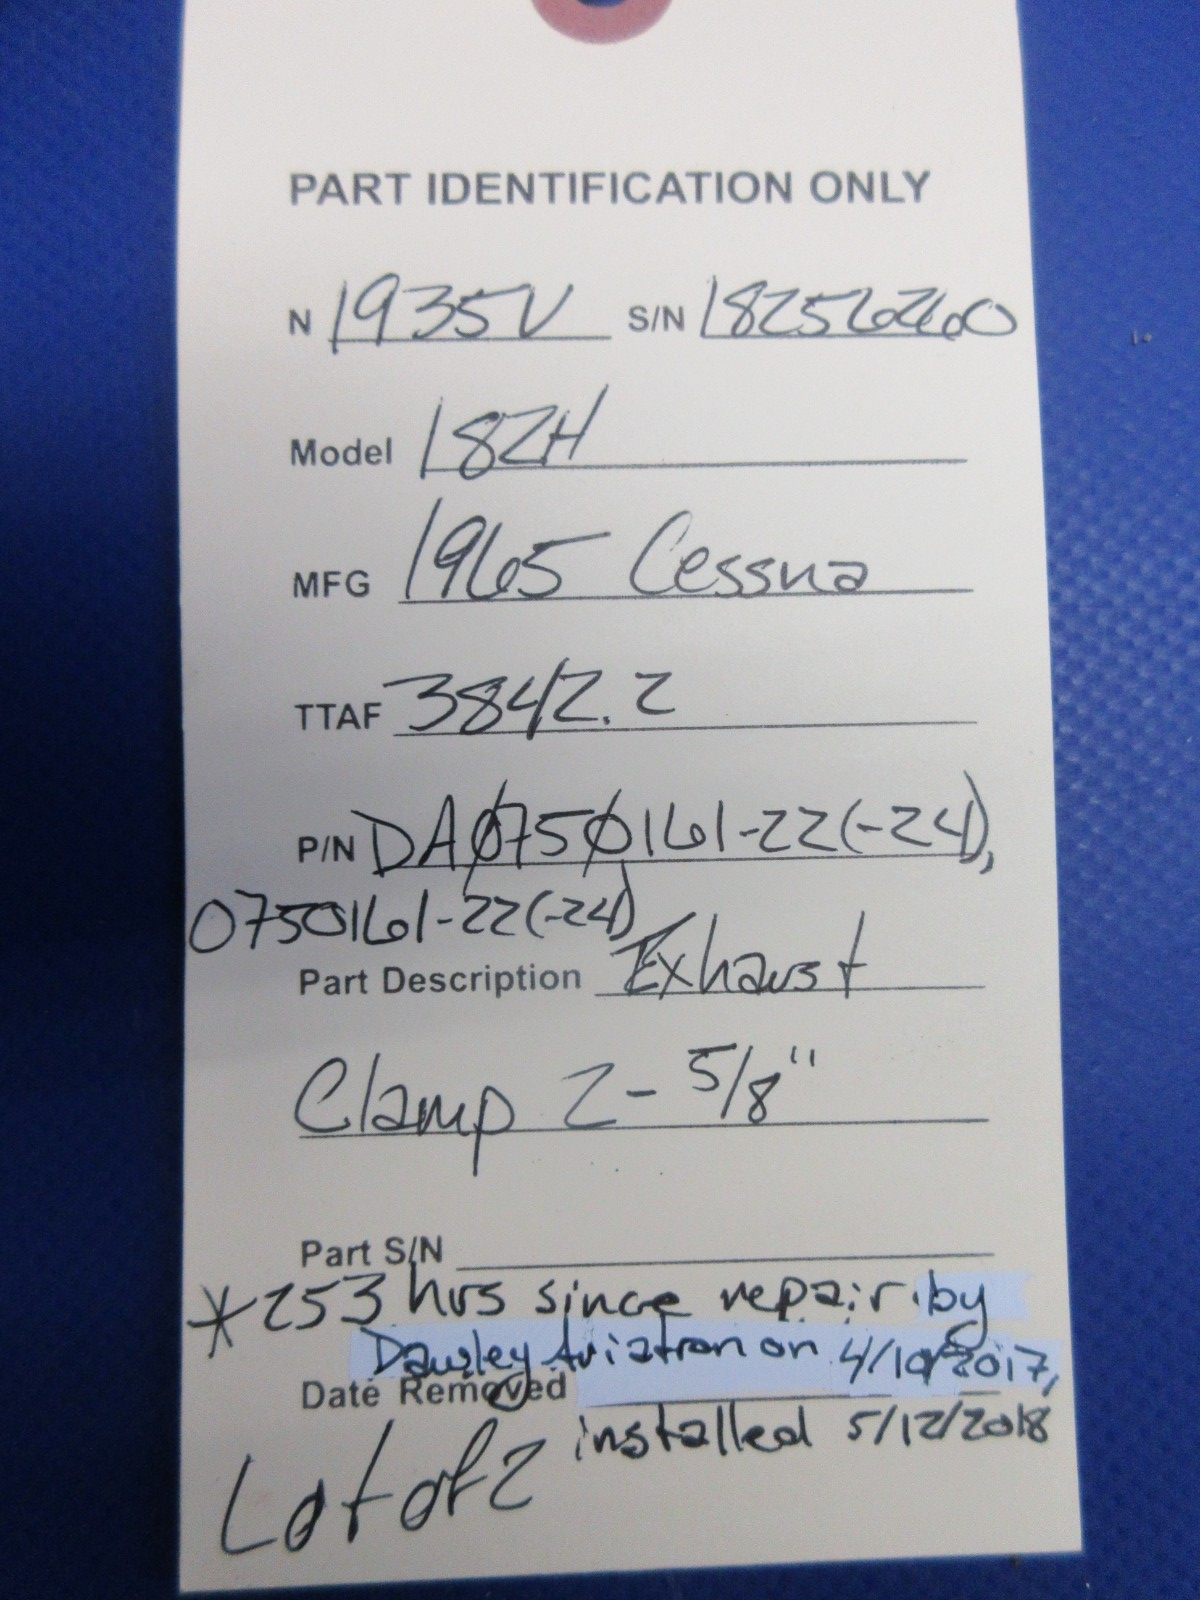 PART IDENTIFICATION ONLY
N 1935V S/N 18256260
Model 182H
MFG 1965 Cessna
TTAF 3842.2
P/N DA0750161-22(-24),
0750161-22(-24)
Part Description Exhaust
Clamp 2-5/8"
Part S/N
*253 hrs since repair by
Dawley Aviation on 4/10/2017,
Date Removed
installed 5/12/2018
Lot of 2